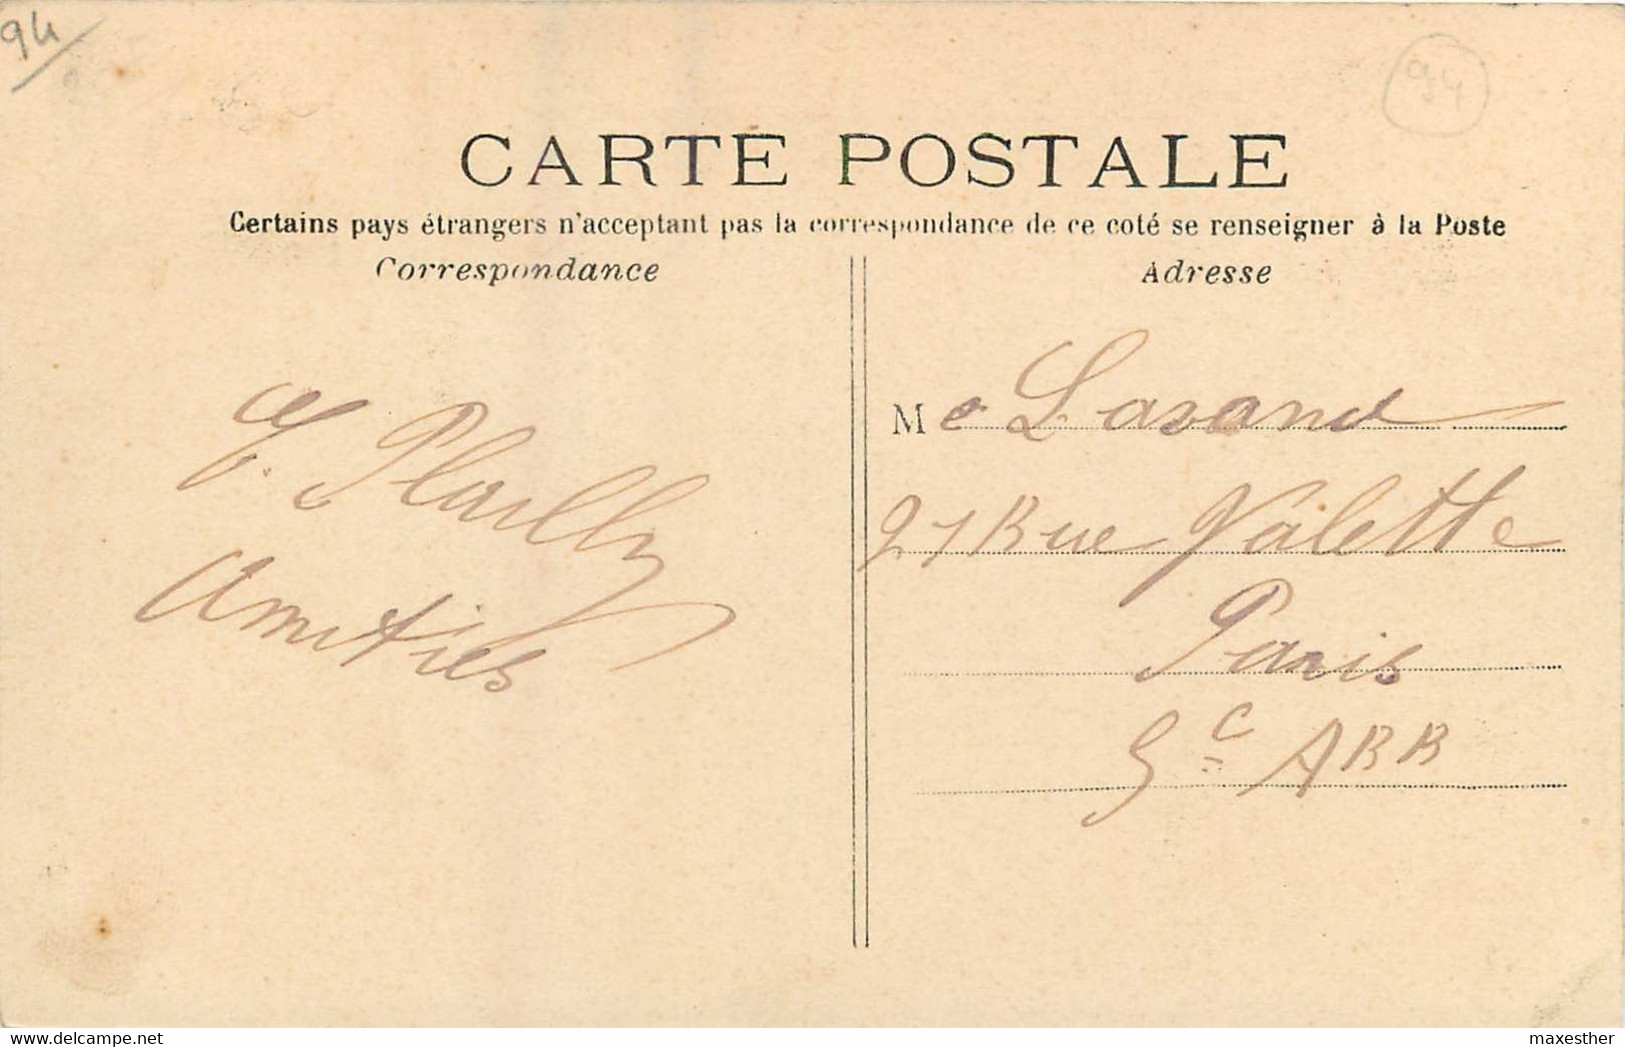 94
94
CARTE POSTALE
Certains pays étrangers n'acceptant pas la correspondance de ce coté se renseigner à la Poste
Correspondance
Plailly
Amitiés
Adresse
Me
21 Rue Valette
Paris
5e ARR
maxesther